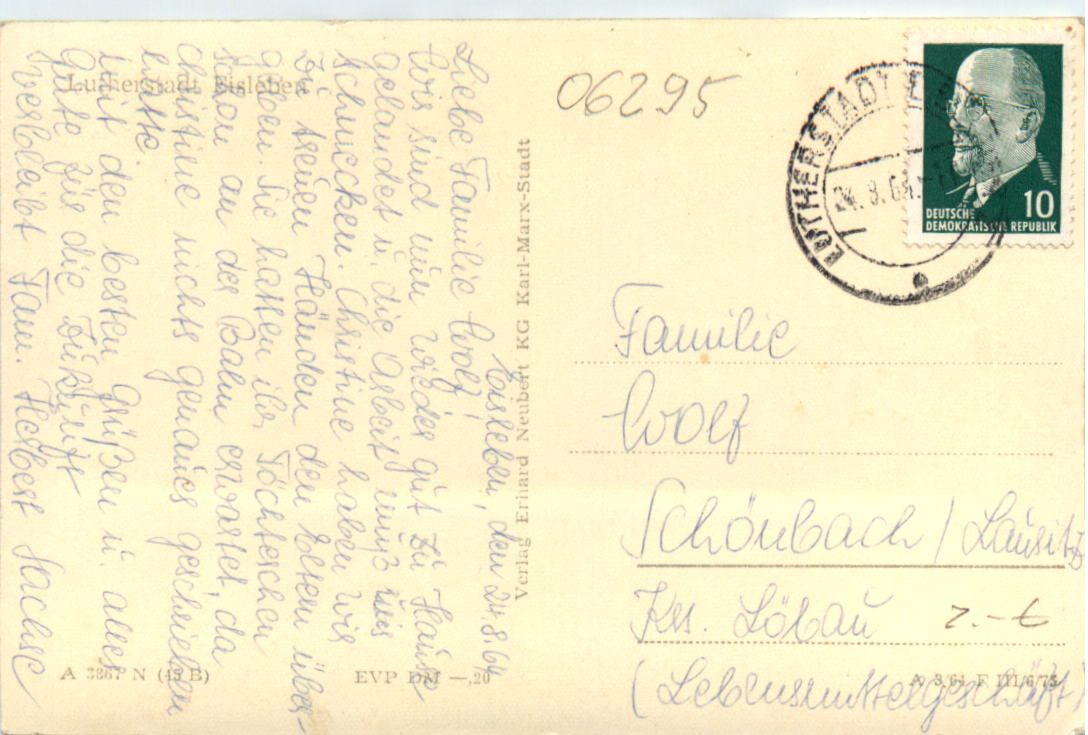 Lutherstadt Eisleben
Eisleben, den 24.8.64
Liebe Familie Wolf!
Wir sind nun wieder gut zu Hause
gelandet u. die Arbeit muß uns
schmecken. Christine haben wir
zu treuen Händen den Eltern über-
geben. Sie hatten ihr Töchterchen
schon an der Bahn erwartet, da
Christine nichts genaues geschrieben
hatte.
Mit den besten Grüßen u. alles
Gute für die Zukunft
verbleibt Fam. Herbert Sachse
A 3867 N (45 B)
EVP DM —,20
Verlag Erhard Neubert KG Karl-Marx-Stadt
06295
LUTHERSTADT
24.8.64
DEUTSCHE
DEMOKRATISCHE REPUBLIK
10
Familie
Wolf
Schönbach / Lausitz
Krs. Löbau
2.-€
(Lebensmittelgeschäft)
A 3/64 F III/6/75